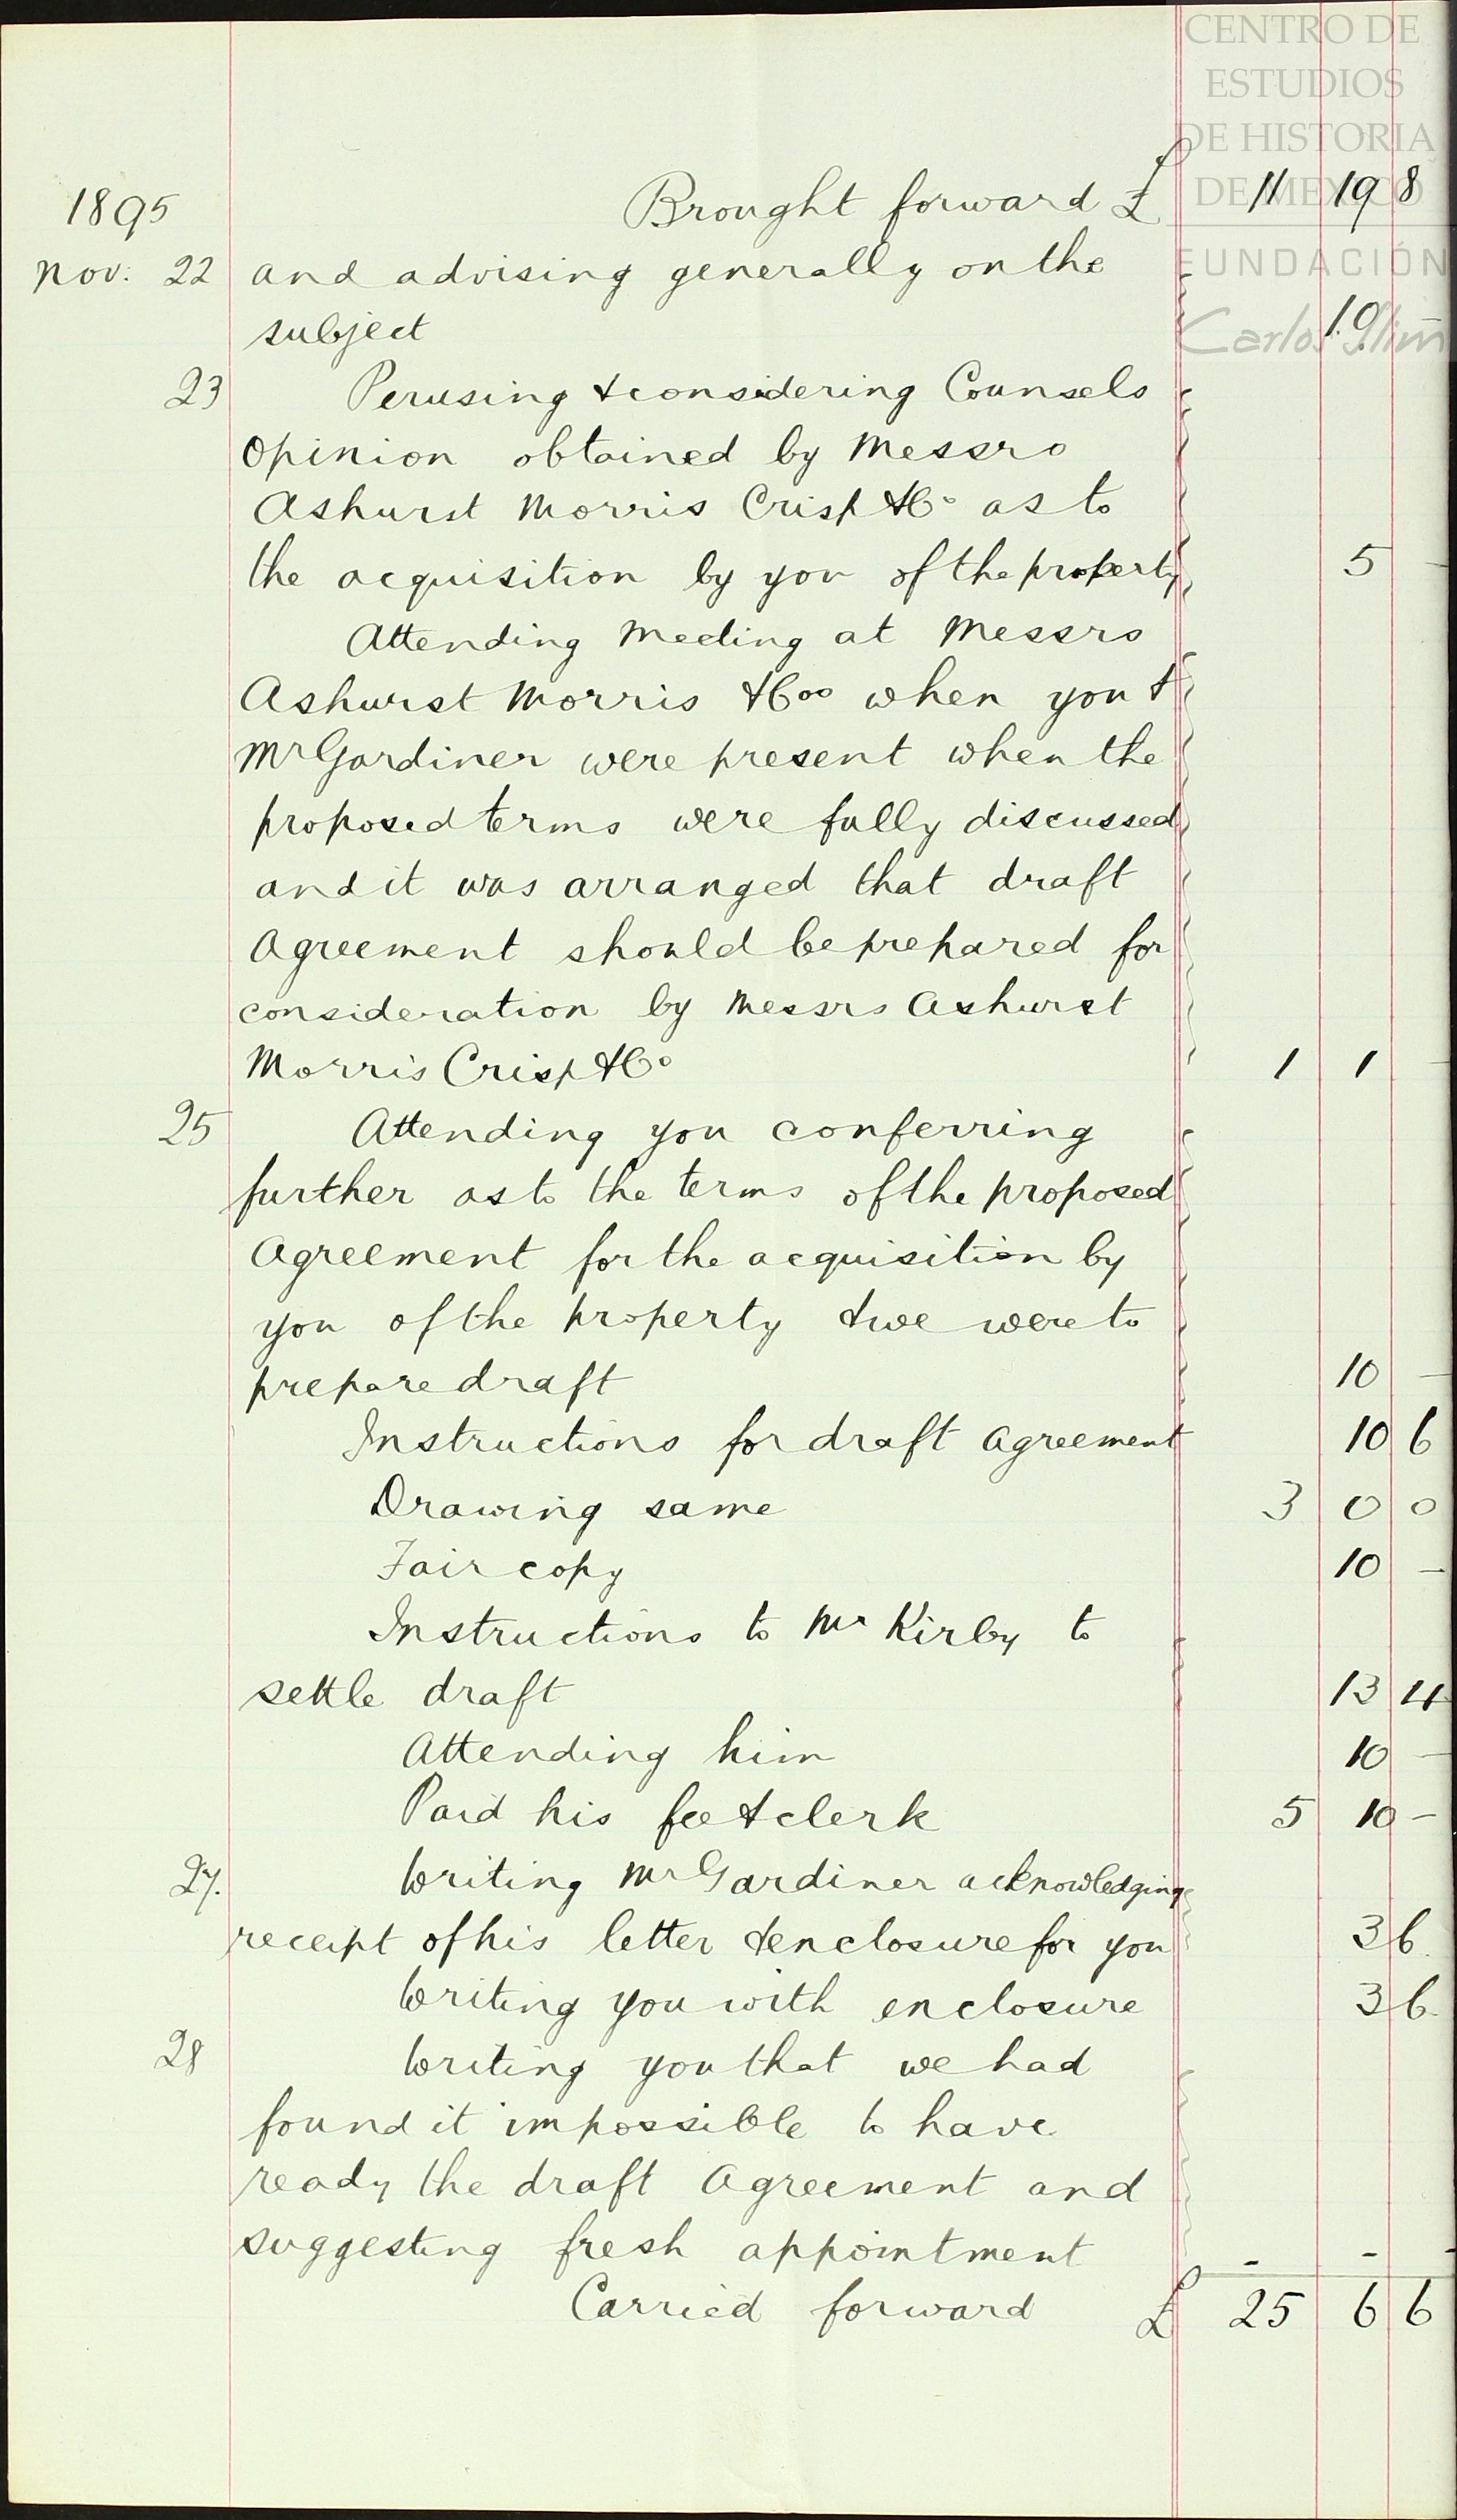 CENTRO DE
ESTUDIOS
DE HISTORIA
DE MEXICO
FUNDACIÓN
Carlos Slim
1895 Brought forward £ 11 19 8
Nov: 22 and advising generally on the
subject 10 –
23 Perusing & considering Counsels
Opinion obtained by Messrs
Ashurst Morris Crisp & Co as to
the acquisition by you of the property 5 –
Attending Meeting at Messrs
Ashurst Morris & Cos when you &
Mr Gardiner were present when the
proposed terms were fully discussed
and it was arranged that draft
Agreement should be prepared for
consideration by Messrs Ashurst
Morris Crisp & Co 1 1 –
25 Attending you conferring
further as to the terms of the proposed
Agreement for the acquisition by
you of the property & we were to
prepare draft 10 –
Instructions for draft Agreement 10 6
Drawing same 3 0 0
Fair copy 10 –
Instructions to Mr Kirby to
settle draft 13 4
Attending him 10 –
Paid his fee & clerk 5 10 –
27. Writing Mr Gardiner acknowledging
receipt of his letter & enclosure for you 3 6
Writing you with enclosure 3 6
28 Writing you that we had
found it impossible to have
ready the draft Agreement and
suggesting fresh appointment - - -
Carried forward £ 25 6 6